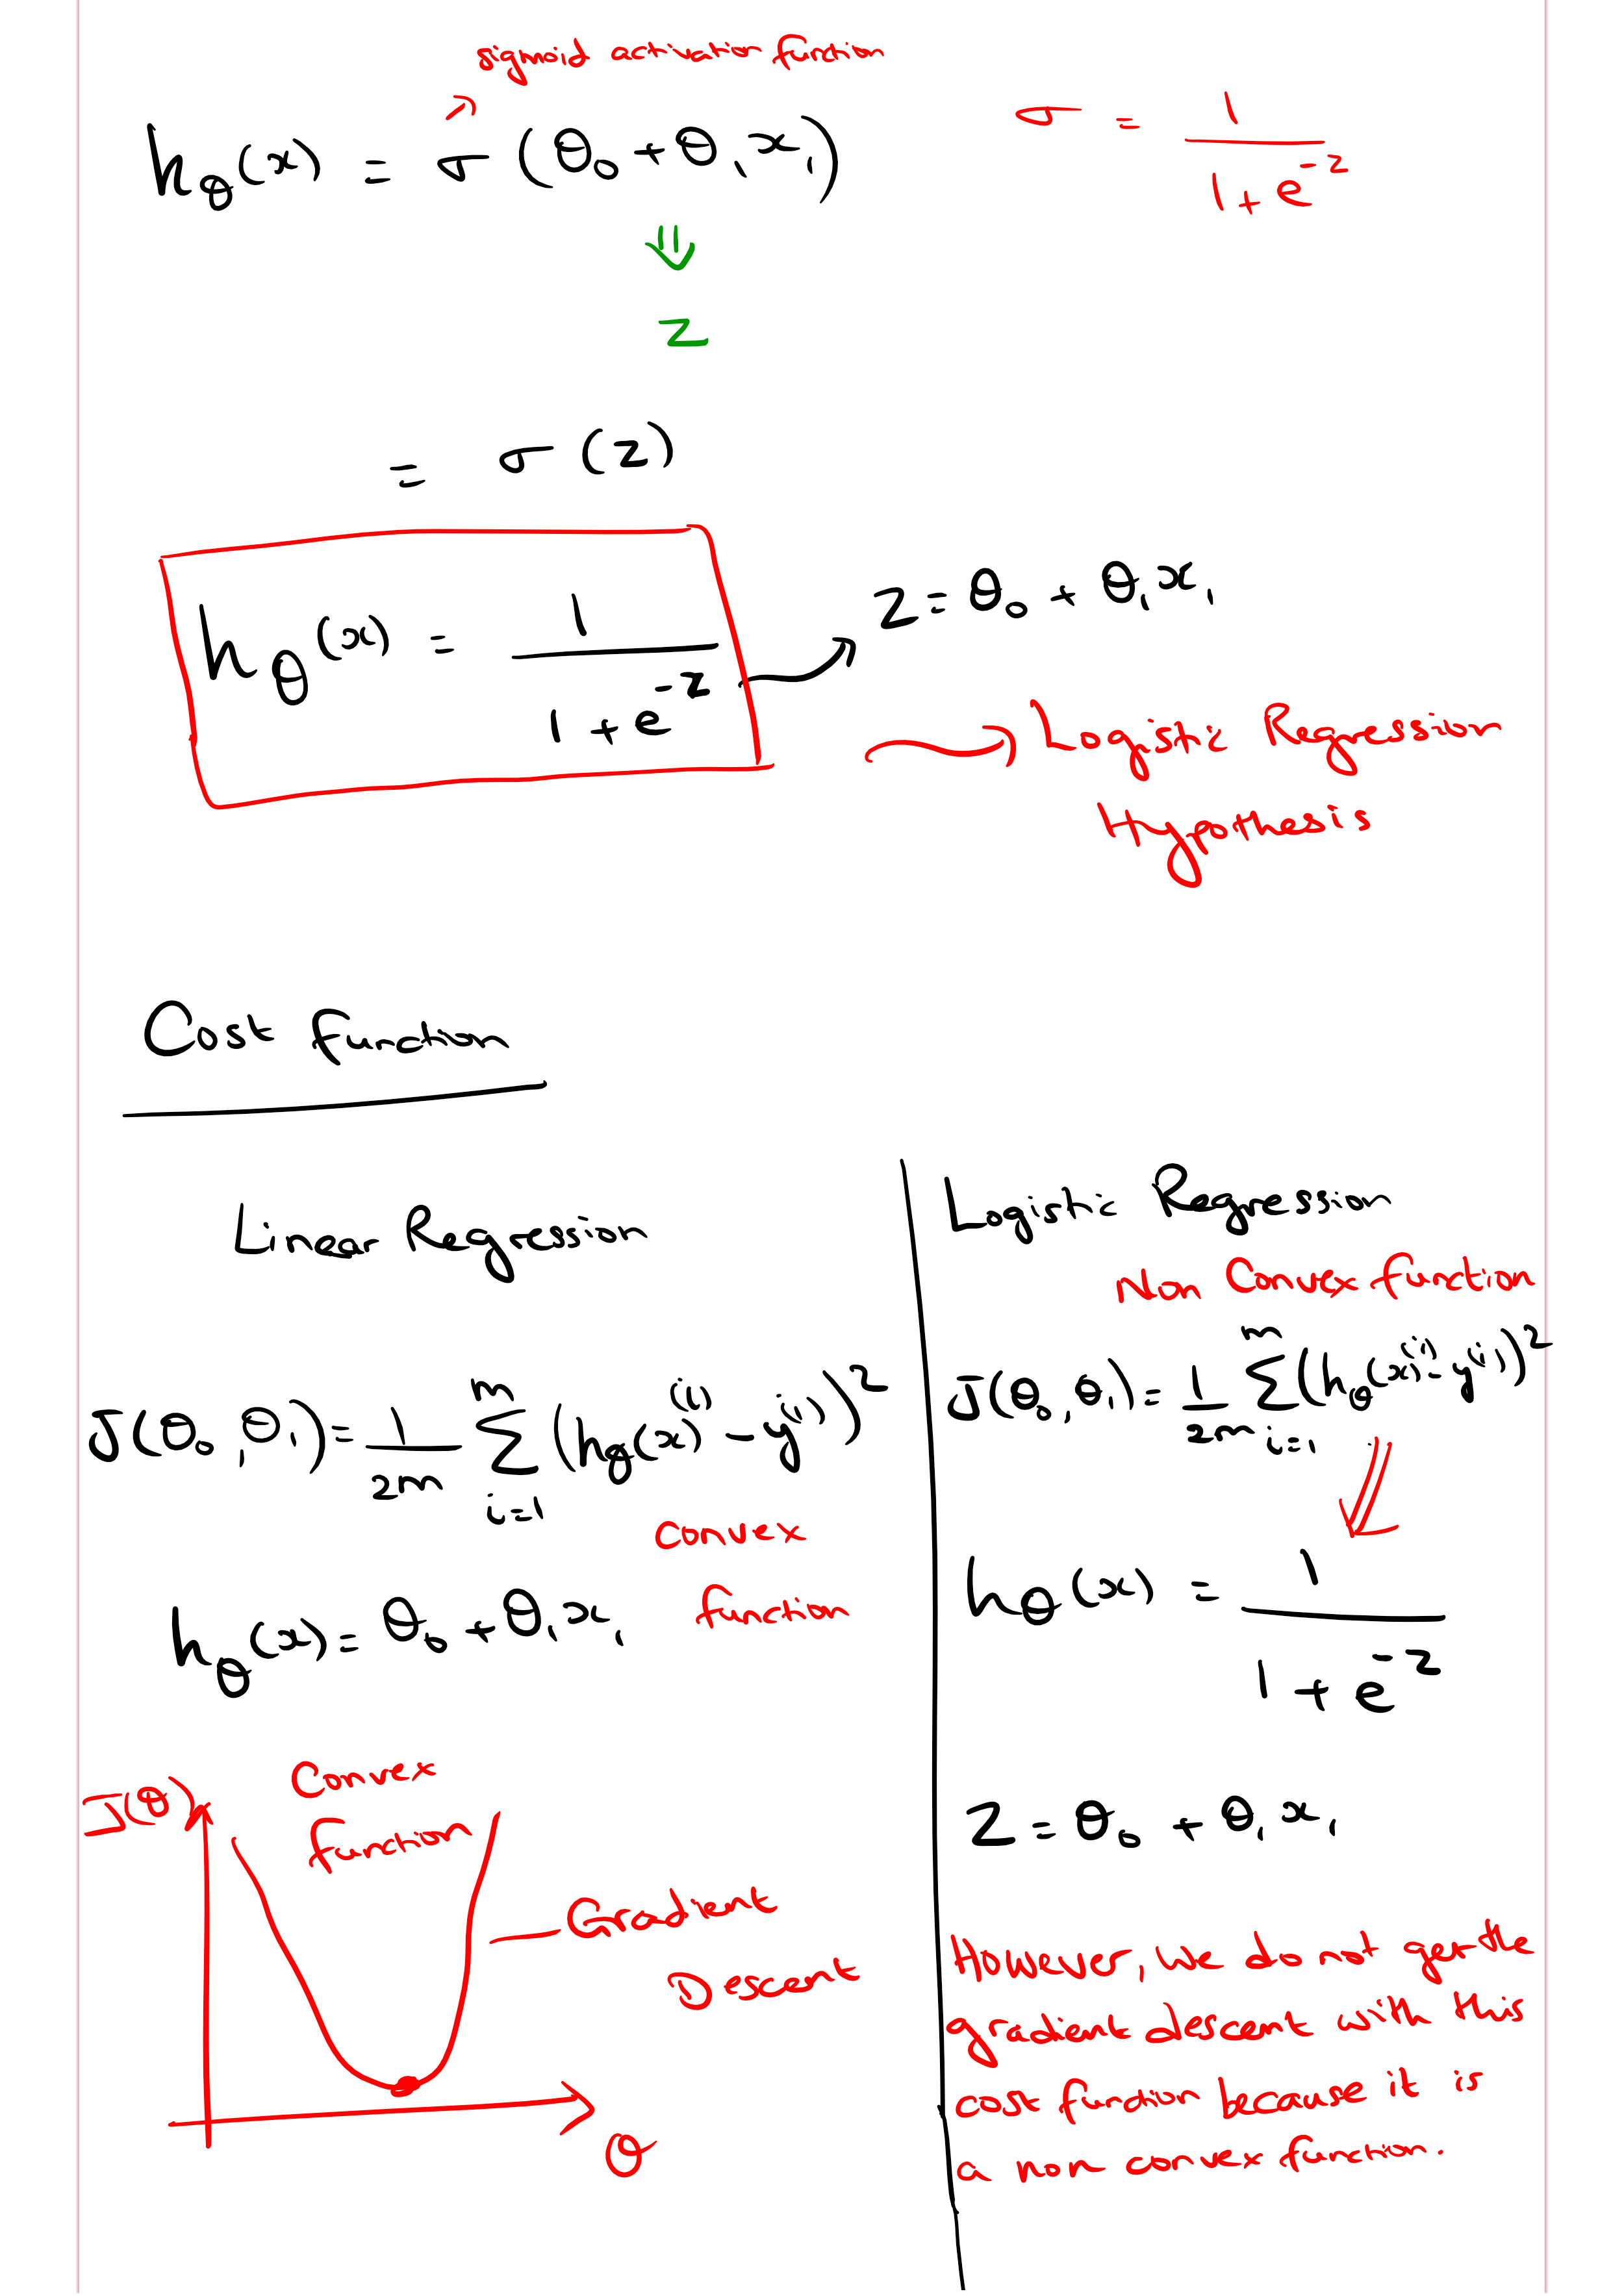 sigmoid activation function
hθ(x) = σ (θ₀ + θ₁x₁)
σ = 1 / 1 + e^-z
⇓
z
= σ (z)
hθ(x) = 1 / 1 + e^-z
z = θ₀ + θ₁x₁
Logistic Regression
Hypothesis
Cost function
Linear Regression
J(θ₀, θ₁) = 1/2m Σ i=1 m (hθ(x)^(i) - y^(i))²
convex
function
hθ(x) = θ₀ + θ₁x₁
J(θ)
Convex
function
Gradient
Descent
θ
Logistic Regression
Non Convex function
J(θ₀, θ₁) = 1/2m Σ i=1 m (hθ(x)^(i) - y^(i))²
hθ(x) = 1 / 1 + e^-z
z = θ₀ + θ₁x₁
However, we do not get the
gradient descent with this
cost function because it is
a non convex function.